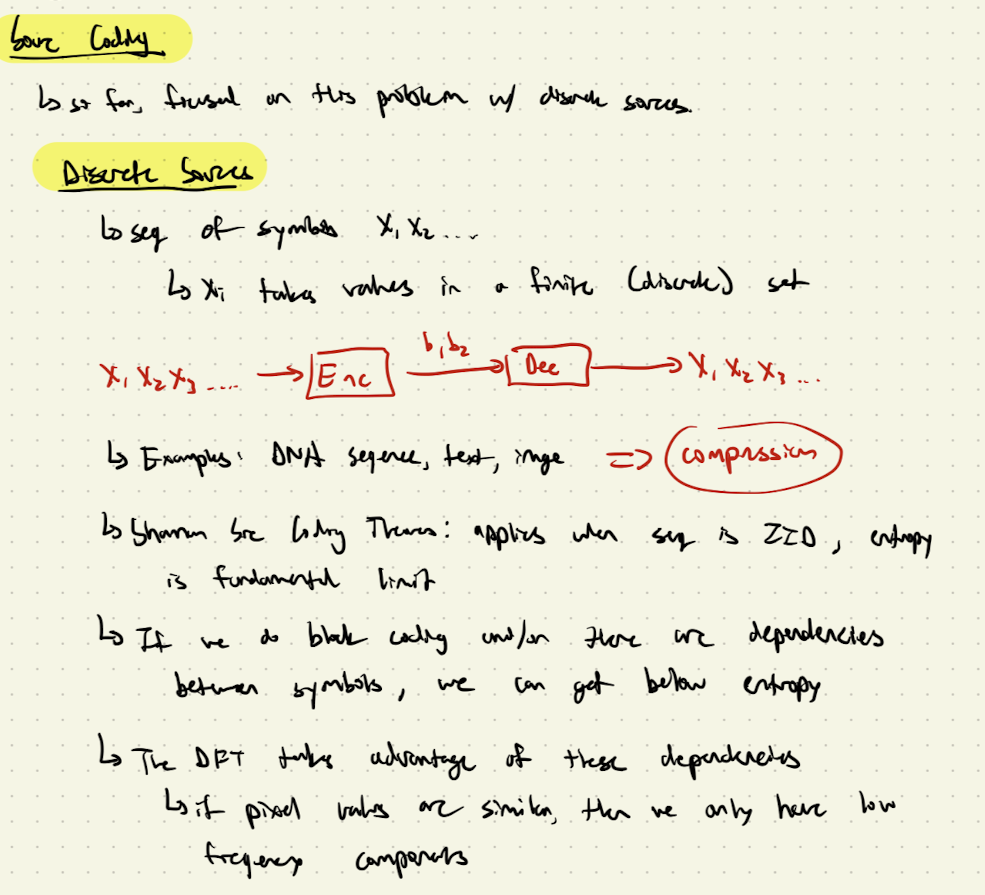 Sourc Coding
↳ so far, focused on this problem w/ discrete sources.
Discrete Sources
↳ seq of symbols X₁ X₂ ...
↳ Xi takes values in a finite (discrete) set
X₁ X₂ X₃ .... → Enc b₁ b₂ → Dec → X₁ X₂ X₃ ...
↳ Examples: DNA sequence, text, image ⇒ compression
↳ Shannon Src Coding Theorem: applies when seq is IID, entropy
is fundamental limit
↳ If we do block coding and/or there are dependencies
between symbols, we can get below entropy
↳ The DFT takes advantage of these dependencies
↳ if pixel values are similar, then we only have low
frequency components